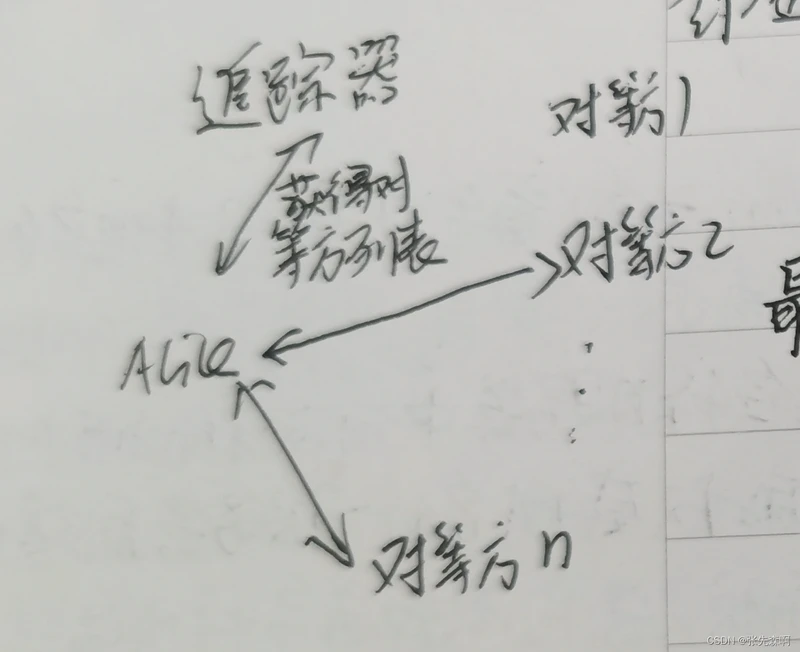 追踪器
对等方1
获得对
等方列表
对等方2
Alice
对等方n
CSDN @张先森啊